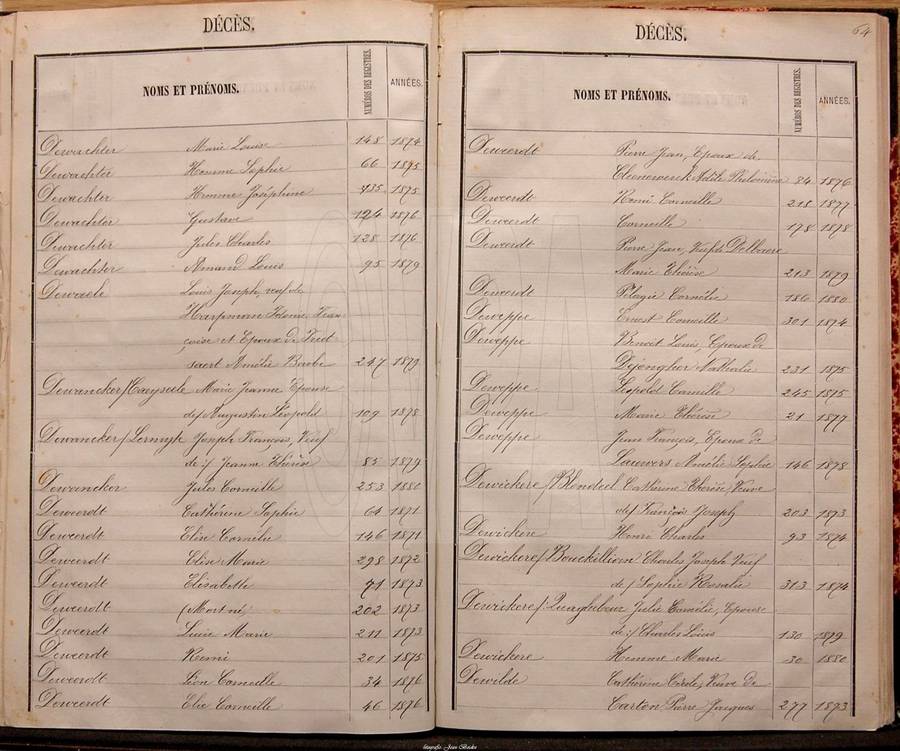 DÉCÈS.
NOMS ET PRÉNOMS. NUMÉROS DES REGISTRES. ANNÉES.
Dewachter Marie Louise 148 1874
Dewachter Homme Sophie 66 1875
Dewachter Homme Joséphine 435 1875
Dewachter Gustave 124 1876
Dewachter Jules Charles 128 1876
Dewachter Amand Louis 95 1879
Dewaele Louis Joseph, veuf de
Harpman Fidonie Fran-
çoise et Epoux de
Amélie Barbe 247 1879
Dewancker/ Marie Jeanne Epouse
de/ Augustin Léopold 109 1878
Dewancker/ Joseph François, Veuf
de:/ Jeanne Thérèse 85 1879
Dewancker Jules Corneille 253 1880
Deweerdt Cathérine Sophie 64 1871
Deweerdt Elise Cornélie 146 1871
Deweerdt Elise Marie 298 1872
Deweerdt Elisabeth 71 1873
Deweerdt (Mort né) 202 1873
Deweerdt Lucie Marie 211 1873
Deweerdt Remi 201 1875
Deweerdt Léon Corneille 34 1876
Deweerdt Elie Corneille 46 1876
DÉCÈS. 64
NOMS ET PRÉNOMS. NUMÉROS DES REGISTRES. ANNÉES.
Deweerdt Pierre Jean, Epoux de
Clenewerck Adèle Philomène 84 1876
Deweerdt Remi Corneille 218 1877
Deweerdt Corneille 178 1878
Deweerdt Pierre Jean, Veuf de Delbaere
Marie Thérèse 213 1879
Deweerdt Pélagie Cornélie 186 1880
Deweppe Ernest Corneille 301 1874
Deweppe Benoit Louis, Epoux de
Dejonghe Nathalie 231 1875
Deweppe Léopold Camille 245 1875
Deweppe Marie Thérèse 21 1877
Deweppe Jean François, Epoux de
Lauwers Amélie Sophie 146 1878
Dewickere/Blondeel Cathérine Thérèse, Veuve
de/ François Joseph 203 1873
Dewickere Henri Charles 93 1874
Dewickere/Bouckillion Charles Joseph Veuf
de/ Sophie Rosalie 313 1874
Dewickere/Quaghebeur Julie Camélie, Epouse
de:/ Charles Louis 130 1879
Dewickere Homme Marie 30 1880
Dewilde Cathérine Cécile, Veuve de
Carton Pierre Jacques 277 1873
fotografie Jean Beckx